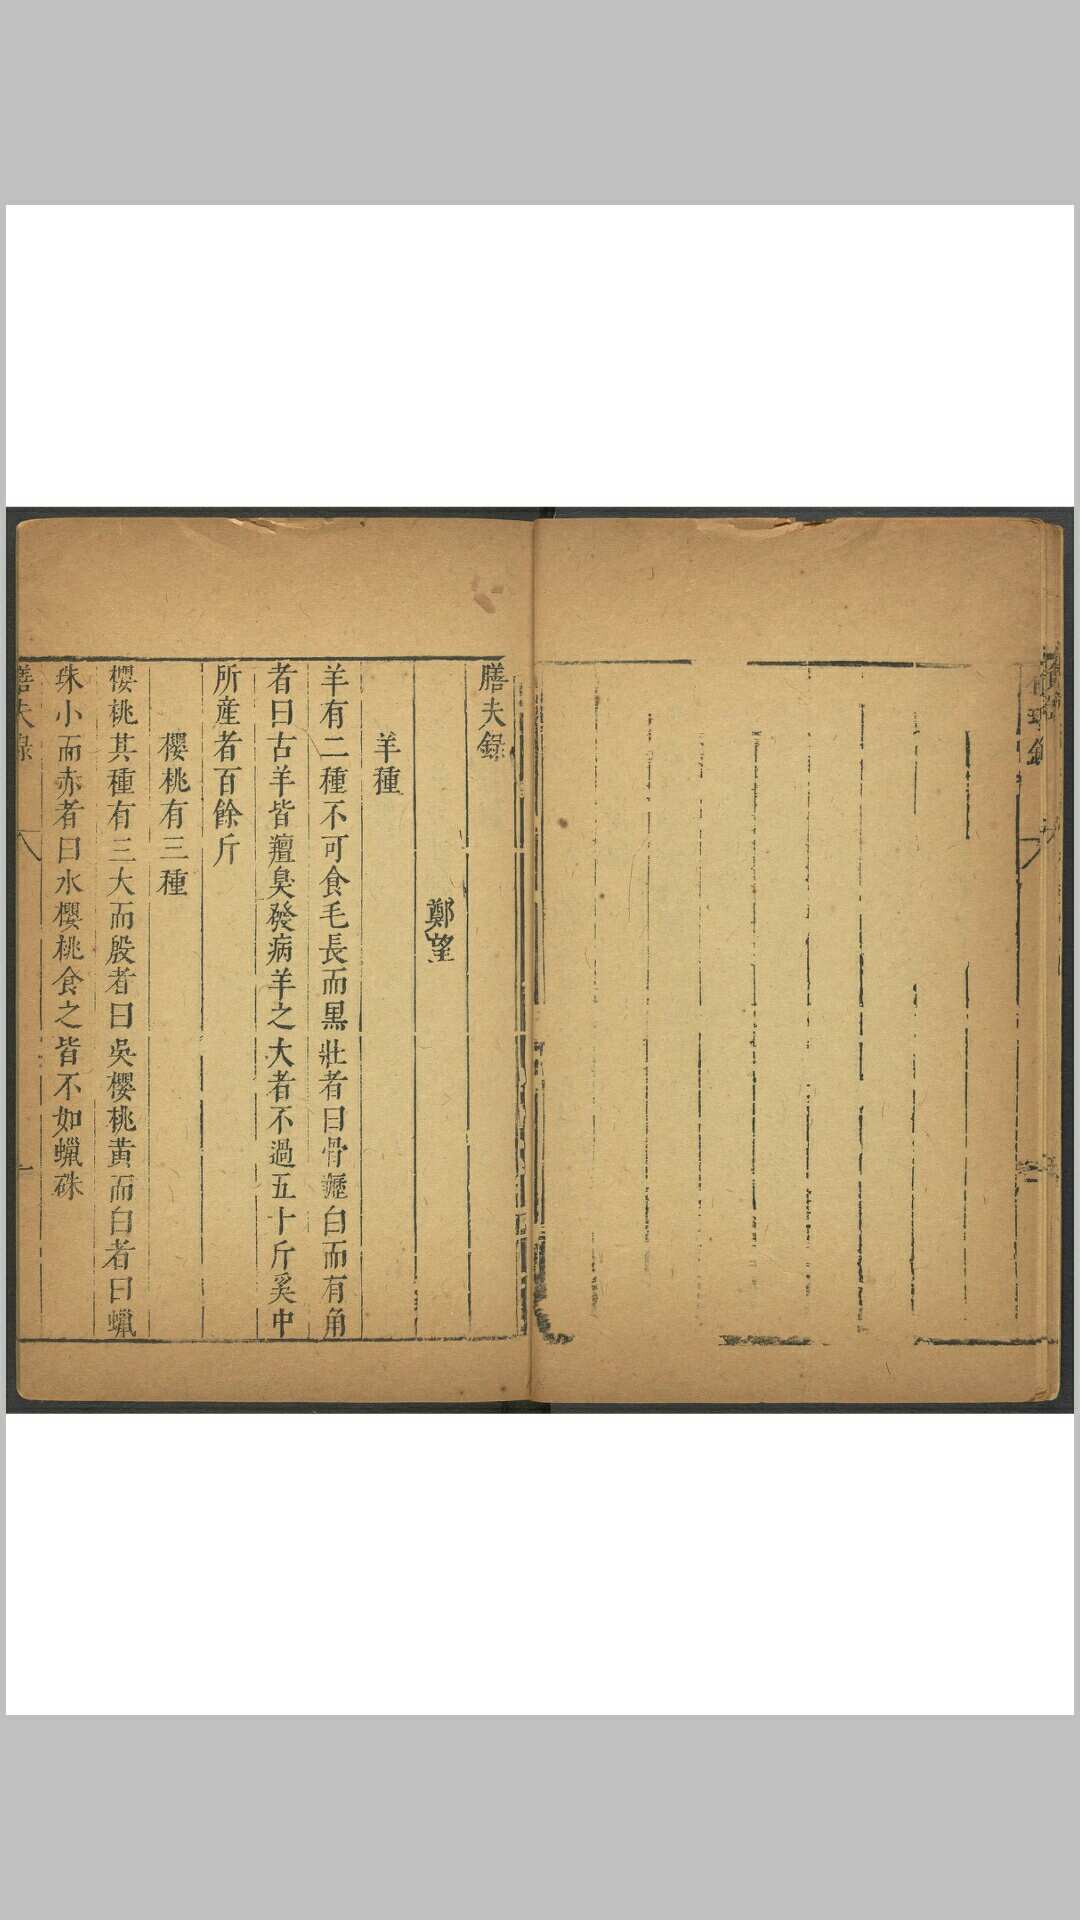 膳夫錄
鄭望
羊種
羊有二種不可食毛長而黑壯者曰骨𤬪白而有角
者曰古羊皆羶臭發病羊之大者不過五十斤奚中
所産者百餘斤
櫻桃有三種
櫻桃其種有三大而殷者曰吳櫻桃黃而白者曰蠟
珠小而赤者曰水櫻桃食之皆不如蠟硃
膳夫錄
一